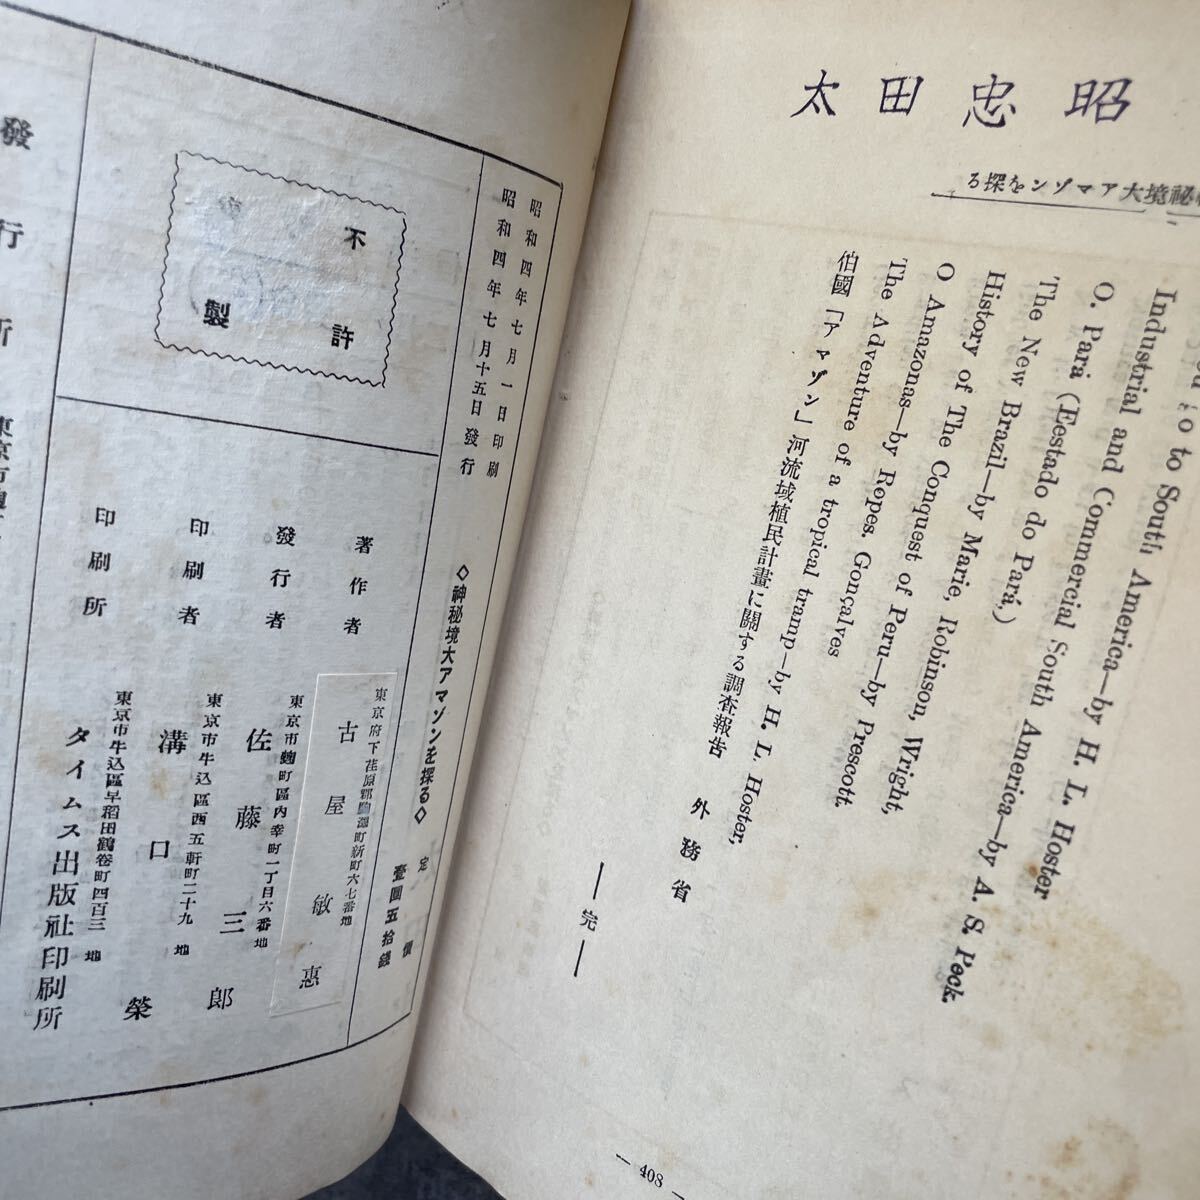 太田忠昭
秘境大アマゾンを探る
to South America—by H. L. Hoster
Industrial and Commercial South America—by A. S. Peck.
O. Pará (Eestado do Pará,)
The New Brazil—by Marie, Robinson, Wright,
History of The Conquest of Peru—by Prescott,
O Amazonas—by Ropes. Gonçalves
The Adventure of a tropical tramp—by H. L. Hoster,
伯國「アマゾン」河流域植民計畫に關する調査報告 外務省
—完—
— 408 —
昭和四年七月一日印刷
昭和四年七月十五日發行
不許
製
◇神秘境大アマゾンを探る◇
定價
壹圓五拾錢
著作者
東京府下荏原郡
町新町六七番地
古屋敏惠
發行者
東京市麹町區內幸町一丁目六番地
佐藤三郎
印刷者
東京市牛込區西五軒町二十九地
溝口榮
印刷所
東京市牛込區早稻田鶴卷町四百三地
タイムス出版社印刷所
發行所
東京市麹